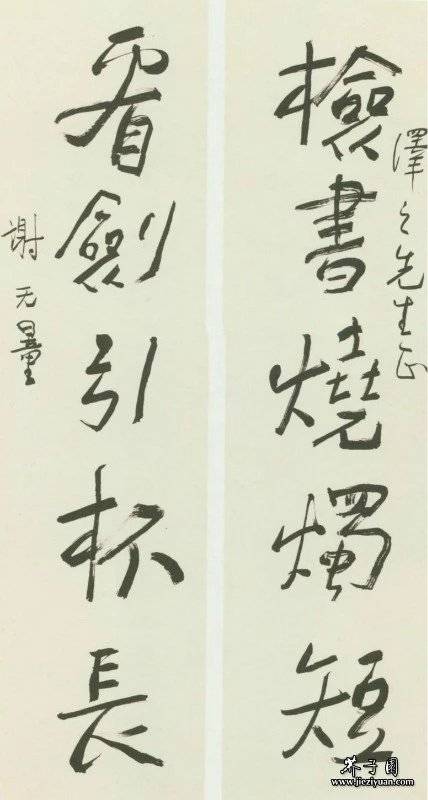 澤之先生正
檢書燒燭短
看劍引杯長
謝无量
芥子園
www.jieziyuan.com